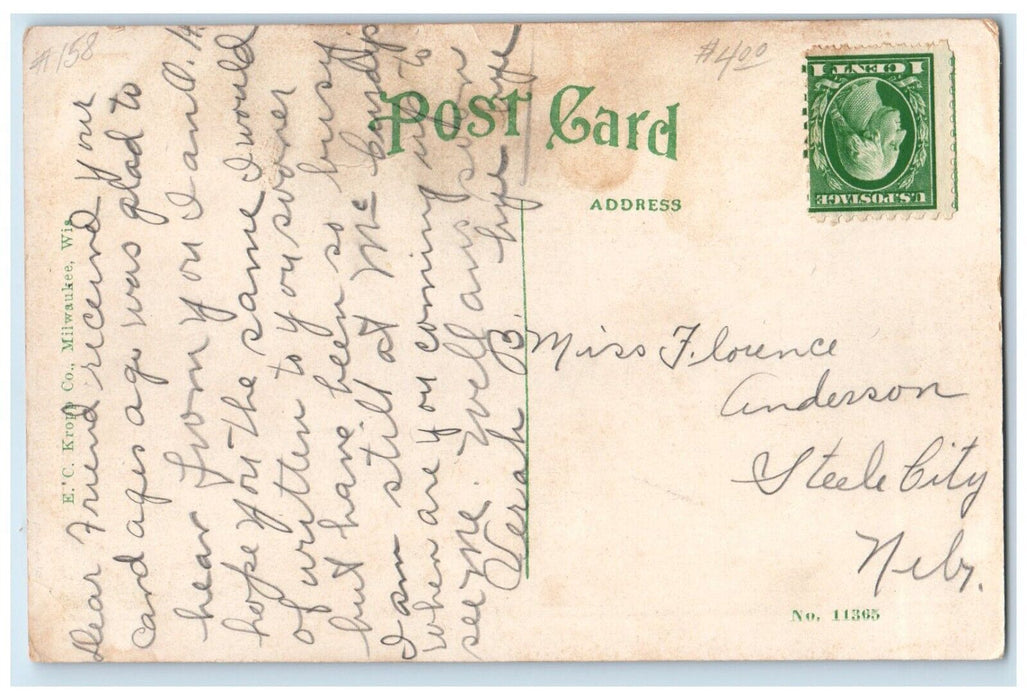 #158
$4.00
Post Card
ADDRESS
1 CENT 1
U.S. POSTAGE
E. C. Kropp Co., Milwaukee, Wis.
Dear Friend receivd your
card ages ago was glad to
hear from you I am O.K.
hope you the same I would
of written to you sooner
but have been so busy
I am still at Mc
when are you coming up to
see me. Well ans soon
bye bye
B.
Miss Florence
Anderson
Steele City
Nebr.
No. 11365